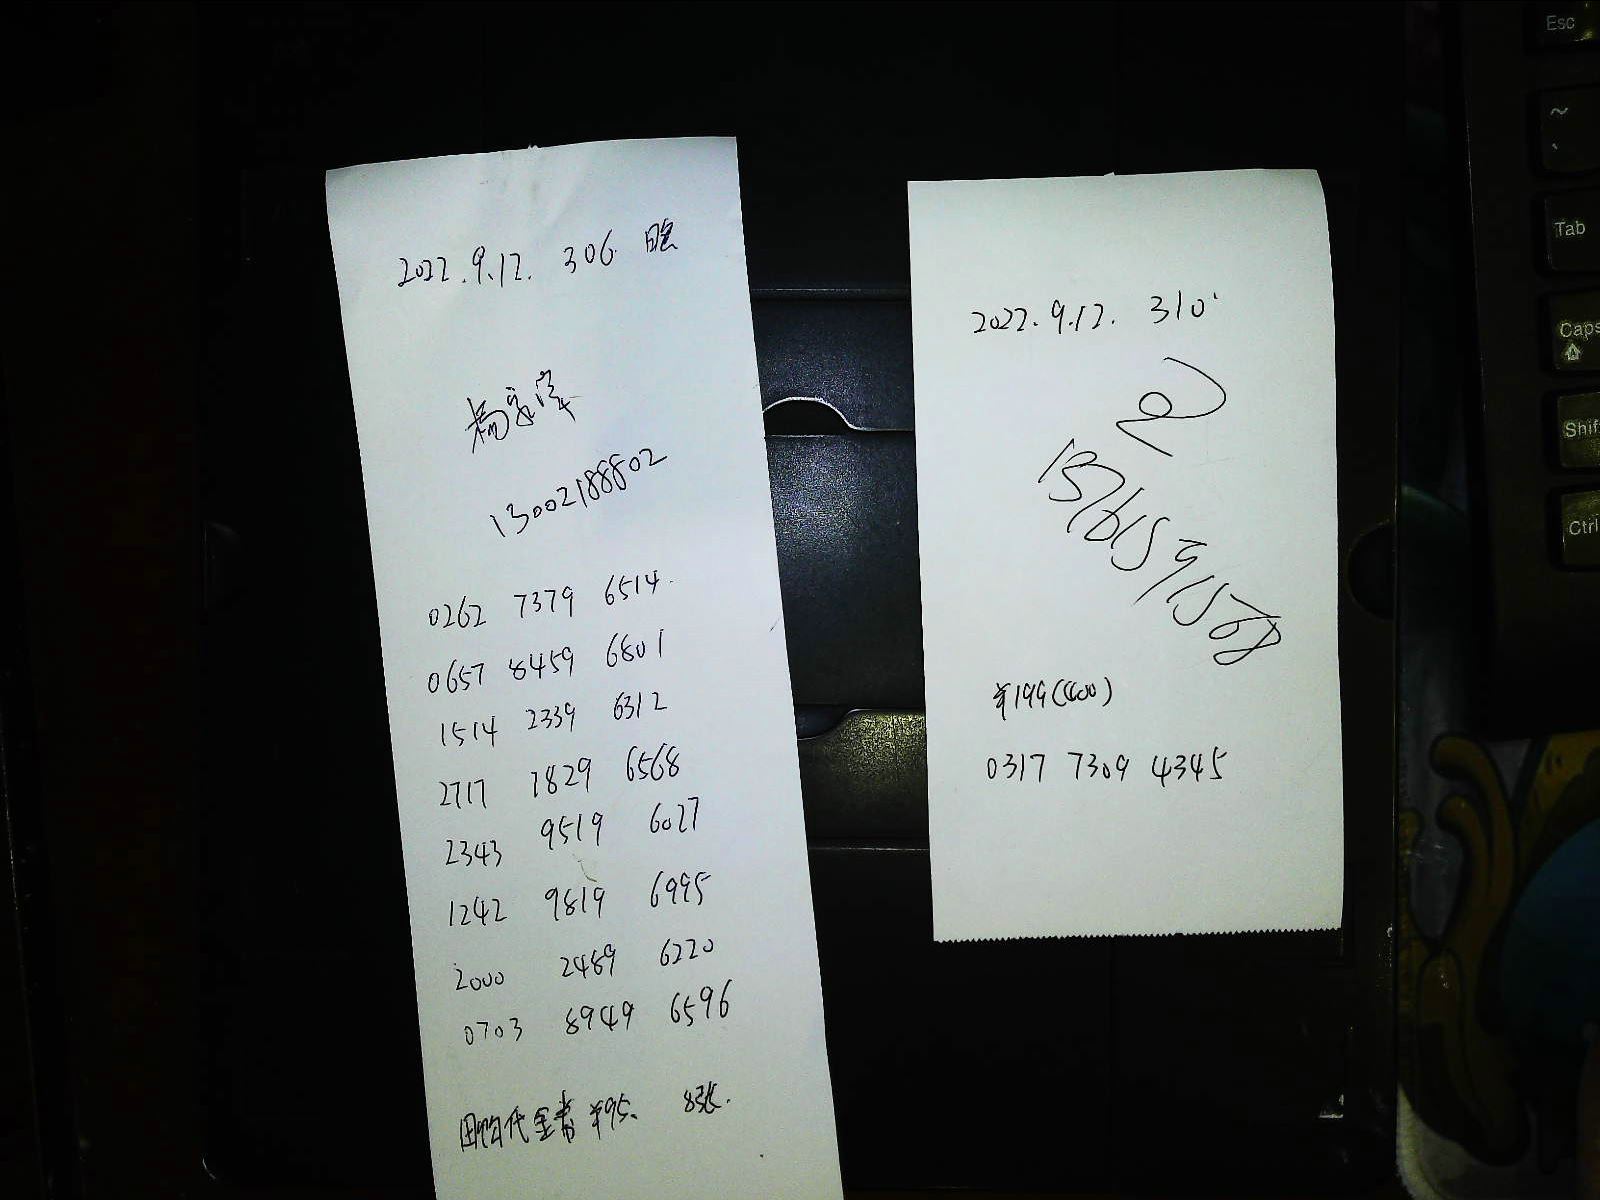 2022.9.12. 306. 晚
13002188802
0262 7379 6514.
0657 8459 6801
1514 2339 6312
2717 1829 6568
2343 9519 6027
1242 9819 6995
2000 2489 6220
0703 8949 6596
团购代金券 ¥95、 8张.
2022.9.12. 310
¥199(400)
0317 7309 4345
Esc
~
Tab
Caps
Shift
Ctrl